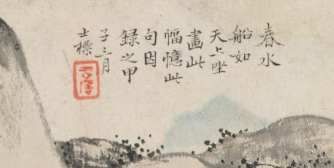 春水
船如
天上坐
畫此
幅憶此
句因
錄之甲
子三月
士標